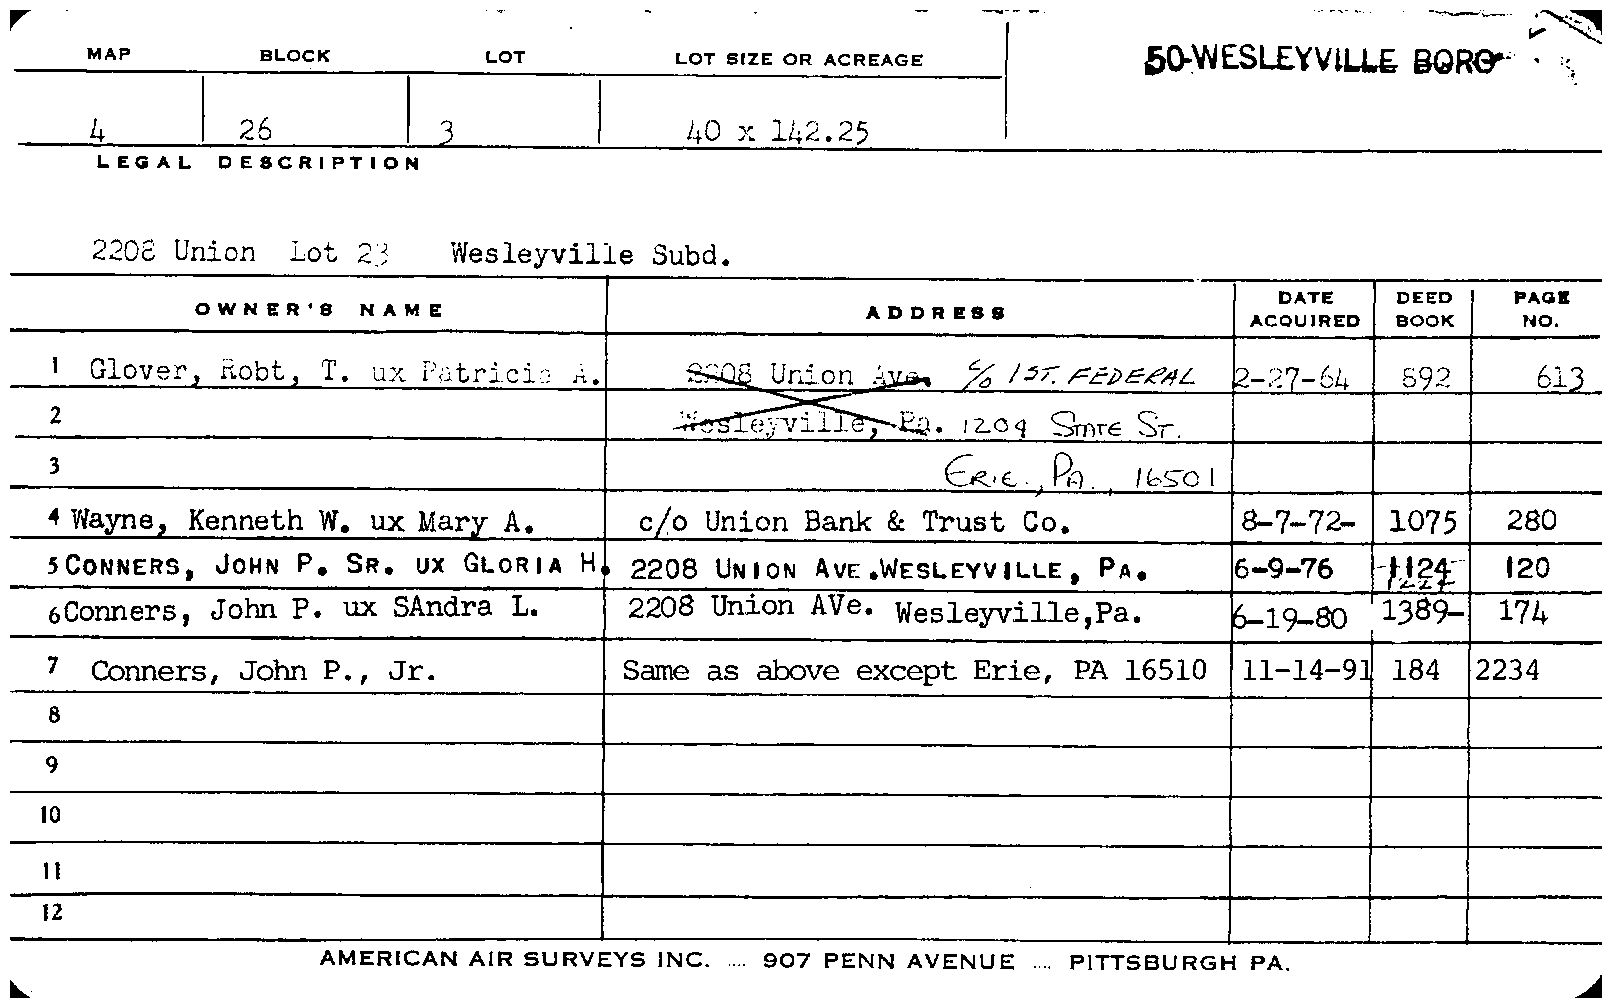 MAP BLOCK LOT LOT SIZE OR ACREAGE 50-WESLEYVILLE BORO
4 26 3 40 x 142.25
LEGAL DESCRIPTION
2208 Union Lot 23 Wesleyville Subd.
OWNER'S NAME ADDRESS DATE ACQUIRED DEED BOOK PAGE NO.
1 Glover, Robt, T. ux Patricia A. 2208 Union Ave. c/o 1ST. FEDERAL 2-27-64 892 613
2 Wesleyville, Pa. 1209 STATE ST.
3 ERIE., PA., 16501
4 Wayne, Kenneth W. ux Mary A. c/o Union Bank & Trust Co. 8-7-72- 1075 280
5 CONNERS, JOHN P. SR. UX GLORIA H. 2208 UNION AVE.WESLEYVILLE, PA. 6-9-76 1124 120
6 Conners, John P. ux SAndra L. 2208 Union AVe. Wesleyville,Pa. 6-19-80 1389- 174
7 Conners, John P., Jr. Same as above except Erie, PA 16510 11-14-91 184 2234
8
9
10
11
12
AMERICAN AIR SURVEYS INC. .... 907 PENN AVENUE .... PITTSBURGH PA.